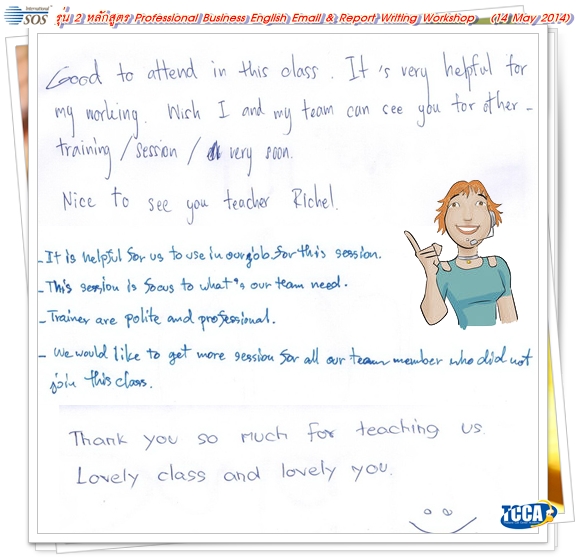 International
SOS
รุ่น 2 หลักสูตร Professional Business English Email & Report Writing Workshop (14 May 2014)
Good to attend in this class. It's very helpful for
my working. Wish I and my team can see you for other -
training / session / very soon.
Nice to see you teacher Richel.
- It is helpful for us to use in our job for this session.
- This session is focus to what's our team need.
- Trainer are polite and professional.
- We would like to get more session for all our team member who did not
join this class.
Thank you so much for teaching us.
Lovely class and lovely you.
TCCA